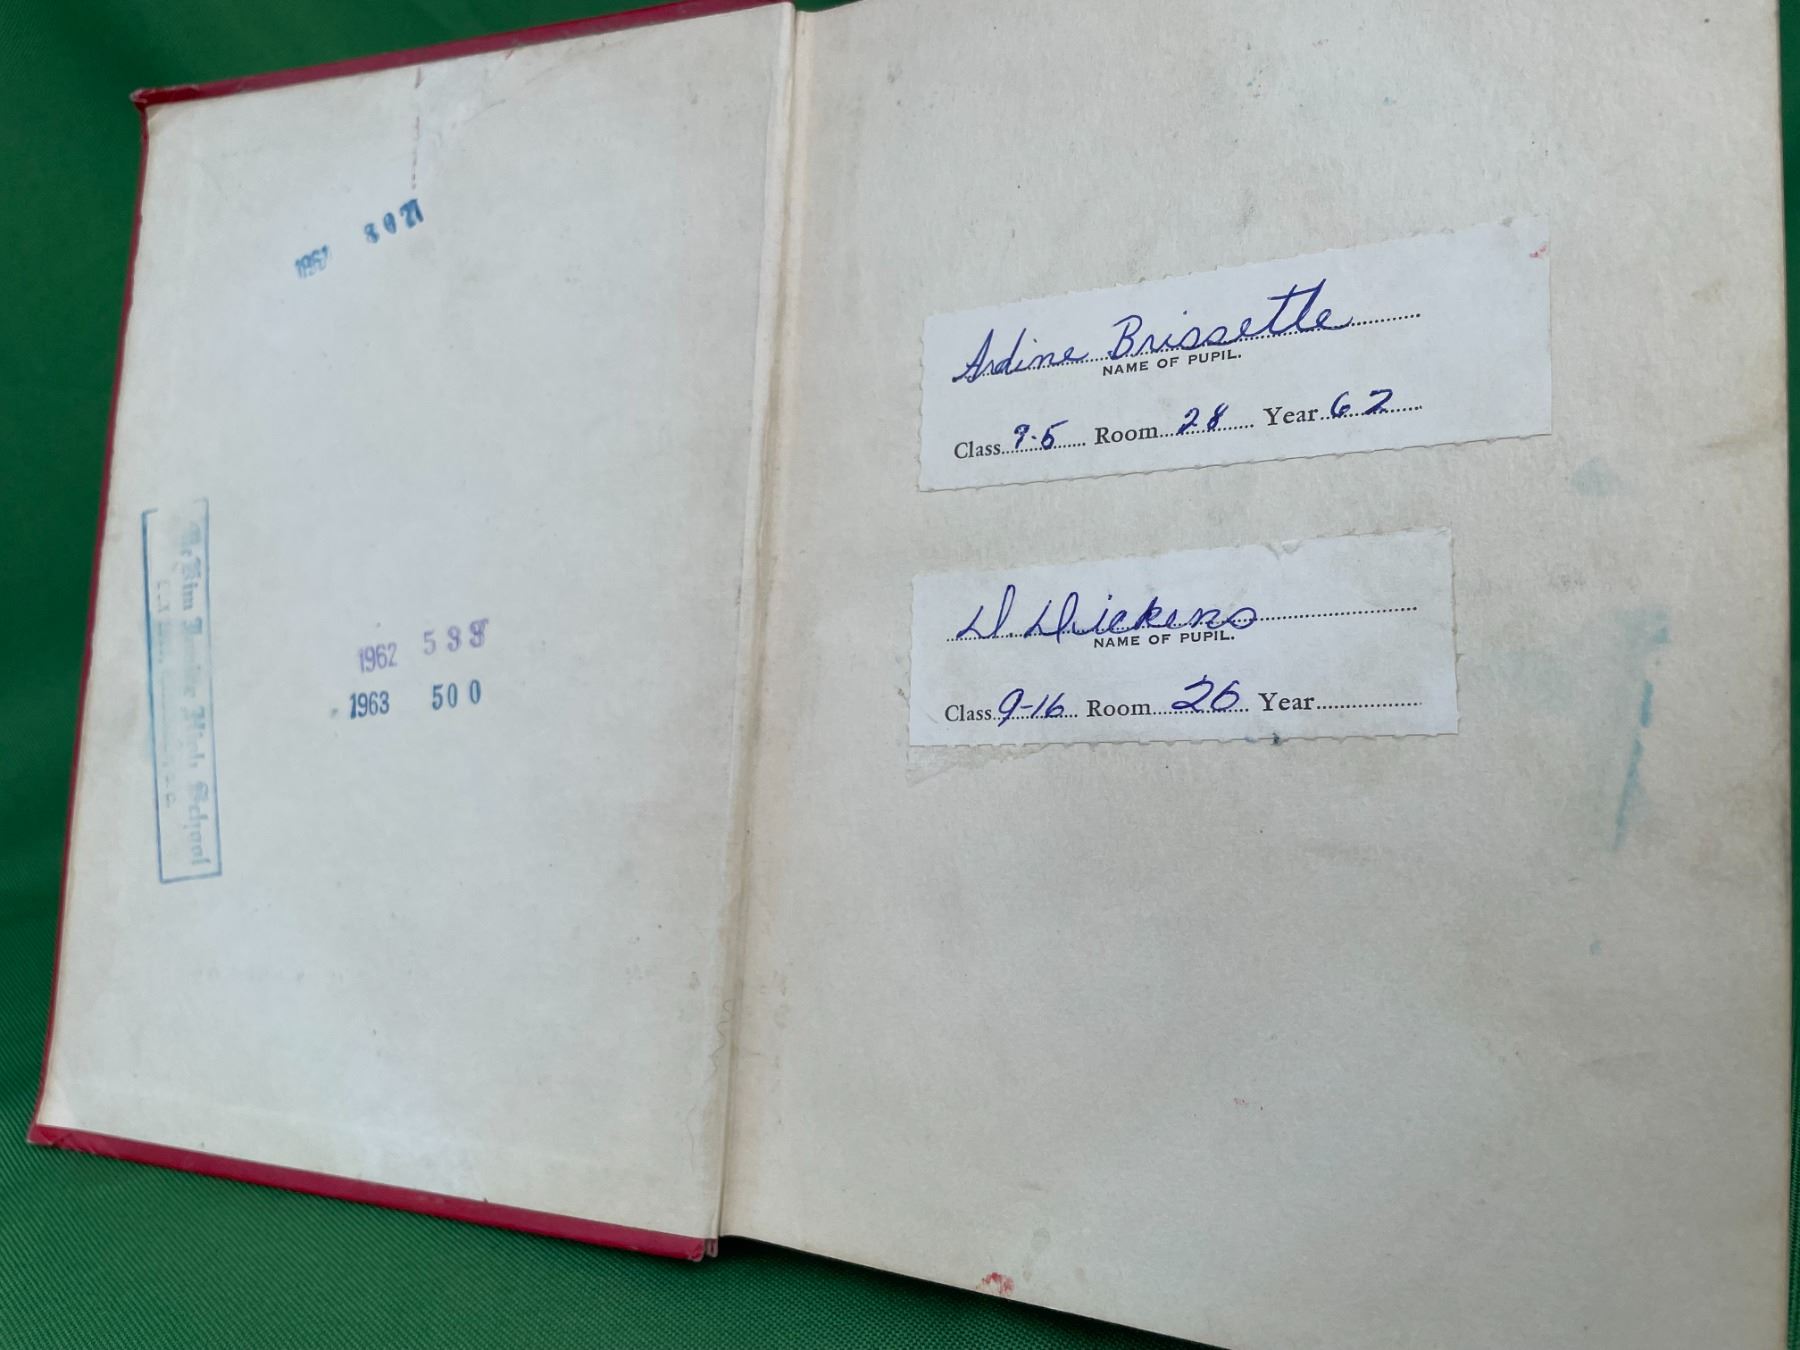 1961 8027
1962 588
1963 500
High School
Ardine Brissette
NAME OF PUPIL.
Class 9-5 Room 28 Year 62
D. Dickens
NAME OF PUPIL.
Class 9-16 Room 26 Year